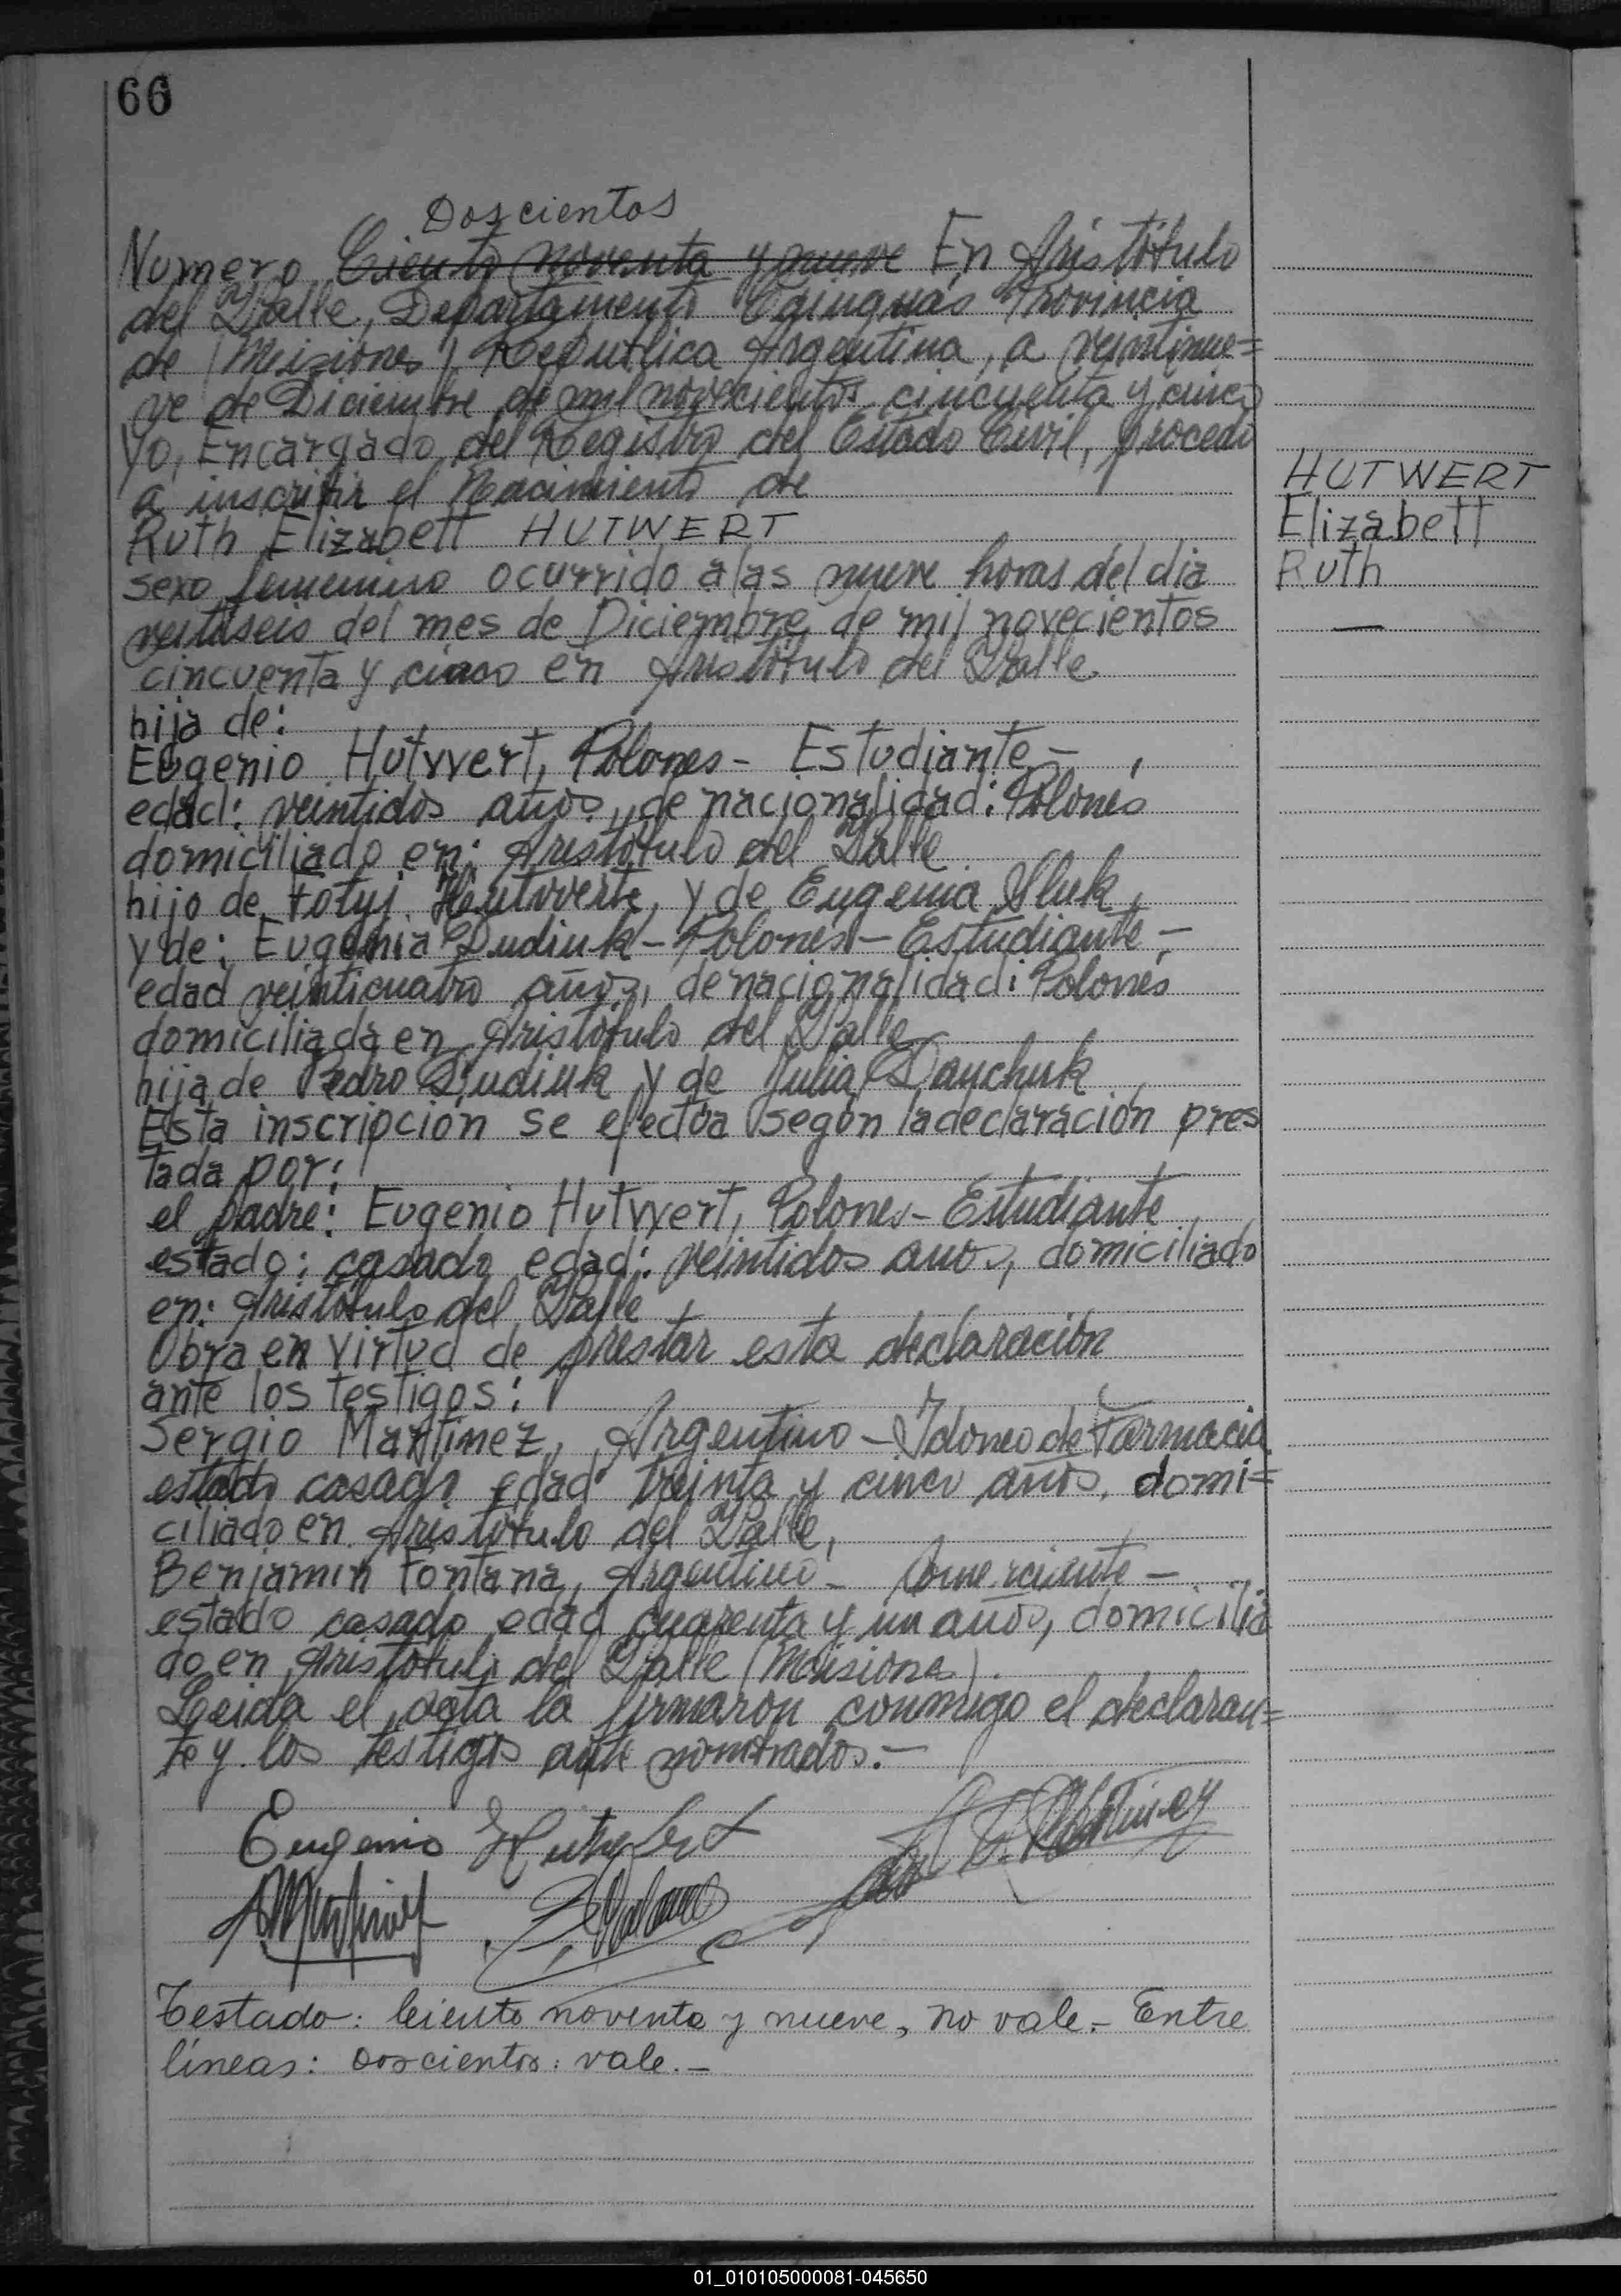 66
Doscientos
Numero Ciento noventa y nueve En Aristóbulo
del Valle, Departamento Cainguás Provincia
de (Misiones) República Argentina, a veintinue=
ve de Diciembre de mil novecientos cincuenta y cinco
Yo, Encargado del Registro del Estado Civil, procedo
a inscribir el Nacimiento de
Ruth Elizabett HUTWERT
sexo femenino ocurrido a las nueve horas del dia
veitiseis del mes de Diciembre de mil novecientos
cincuenta y cinco en Aristóbulo del Valle
hija de:
Eugenio Hutvvert, Polones - Estudiante - ,
edad: veintidos años, de nacionalidad: Polonés
domiciliado en: Aristóbulo del Valle
hijo de Fotyj Hutvvert, y de Eugenia Sluk,
y de: Eugenia Dudiuk - Polonés - Estudiante -
edad veinticuatro años, de nacionalidad: Polonés
domiciliada en Aristóbulo del Valle
hija de Pedro Dudiuk y de Julia Danchuk
Esta inscripción se efectúa según la declaración pres
tada por:
el padre: Eugenio Hutvvert, Polones - Estudiante
estado: casado edad: veintidos años, domiciliado
en: Aristóbulo del Valle,
Obra en virtud de prestar esta declaración
ante los testigos:
Sergio Martinez, Argentino - Idoneo de Farmacia
estado casado edad treinta y cinco años, domi=
ciliado en Aristóbulo del Valle,
Benjamin Fontana, Argentino - Comerciante -
estado casado edad cuarenta y un años, domicilia
do en Aristóbulo del Valle (Misiones).
Leida el acta la firmaron conmigo el declaran=
te y los testigos ante nombrados.-
Eugenio Hutwert
Testado: Ciento noventa y nueve, no vale.- Entre
líneas: Doscientos: vale.-
HUTWERT
Elizabett
Ruth
01_010105000081-045650